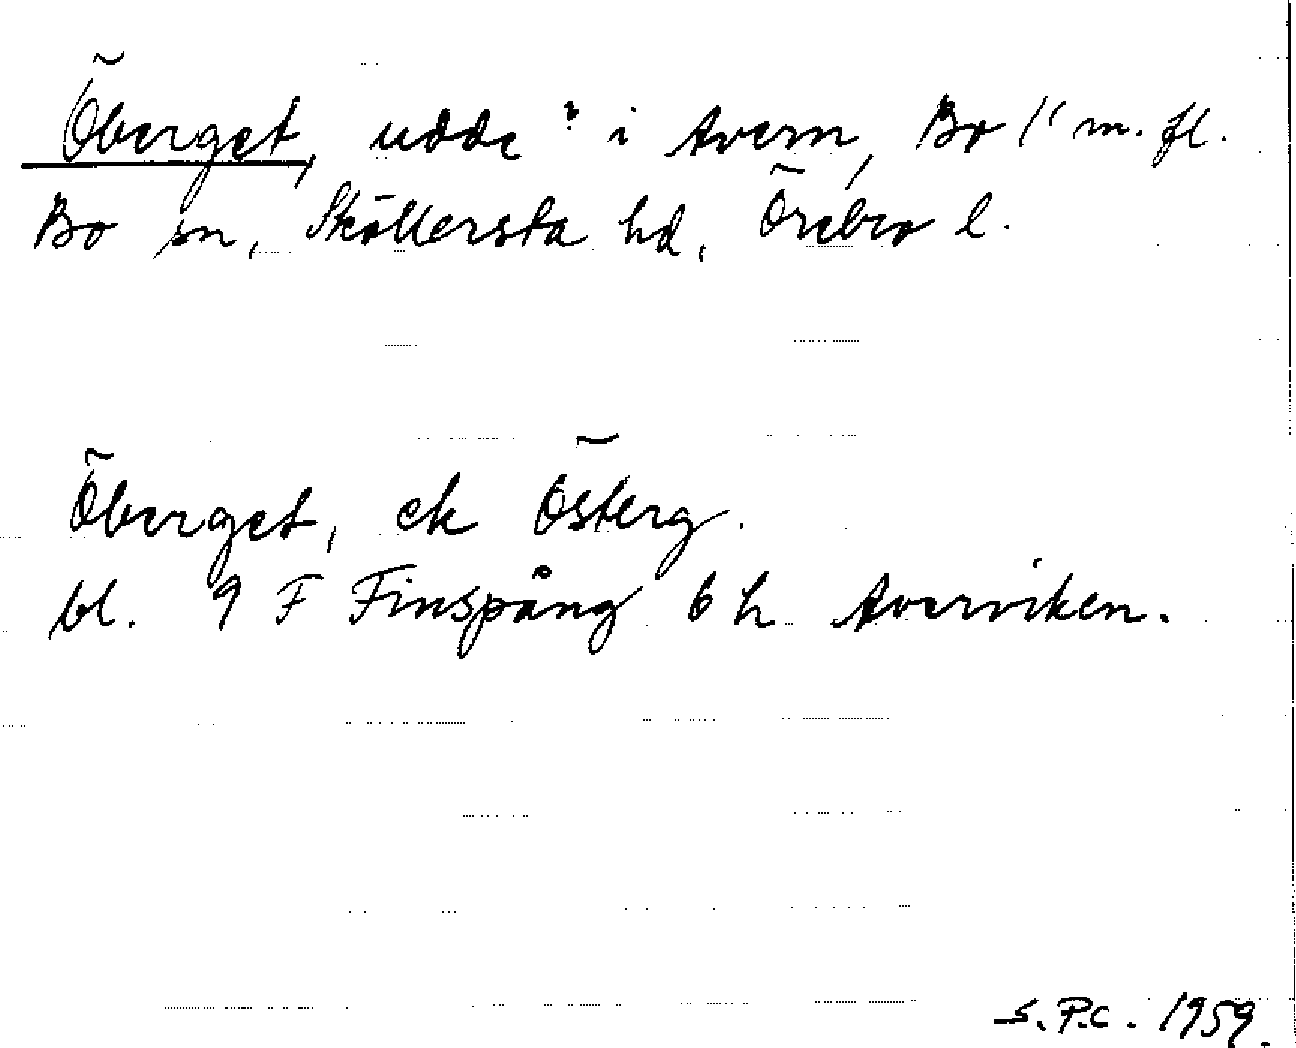 Öberget, udde i Avern, Bo 1/1 m. fl.
Bo sn, Sköllersta hd, Örebro l.
Öberget, ek Österg.
bl. 9 F Finspång 6 h Averviken.
S.P.C. 1959.